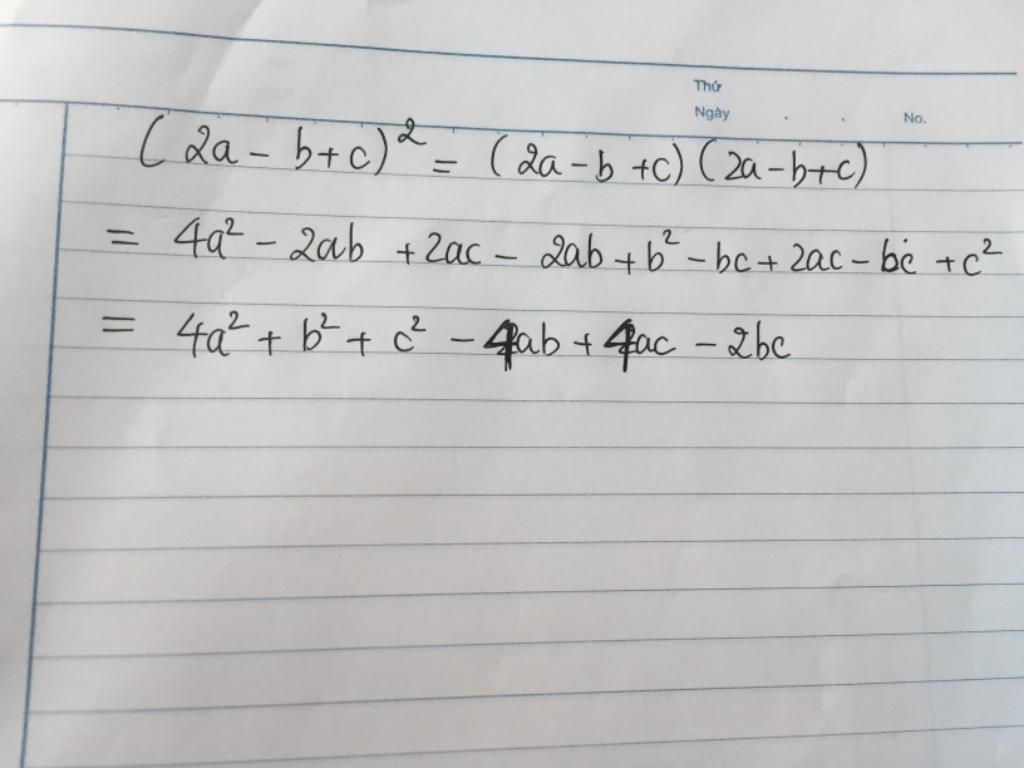 Thứ
Ngày . . No.
(2a - b+c)² = (2a - b +c) (2a - b+c)
= 4a² - 2ab + 2ac - 2ab + b² - bc + 2ac - bc + c²
= 4a² + b² + c² - 4ab + 4ac - 2bc